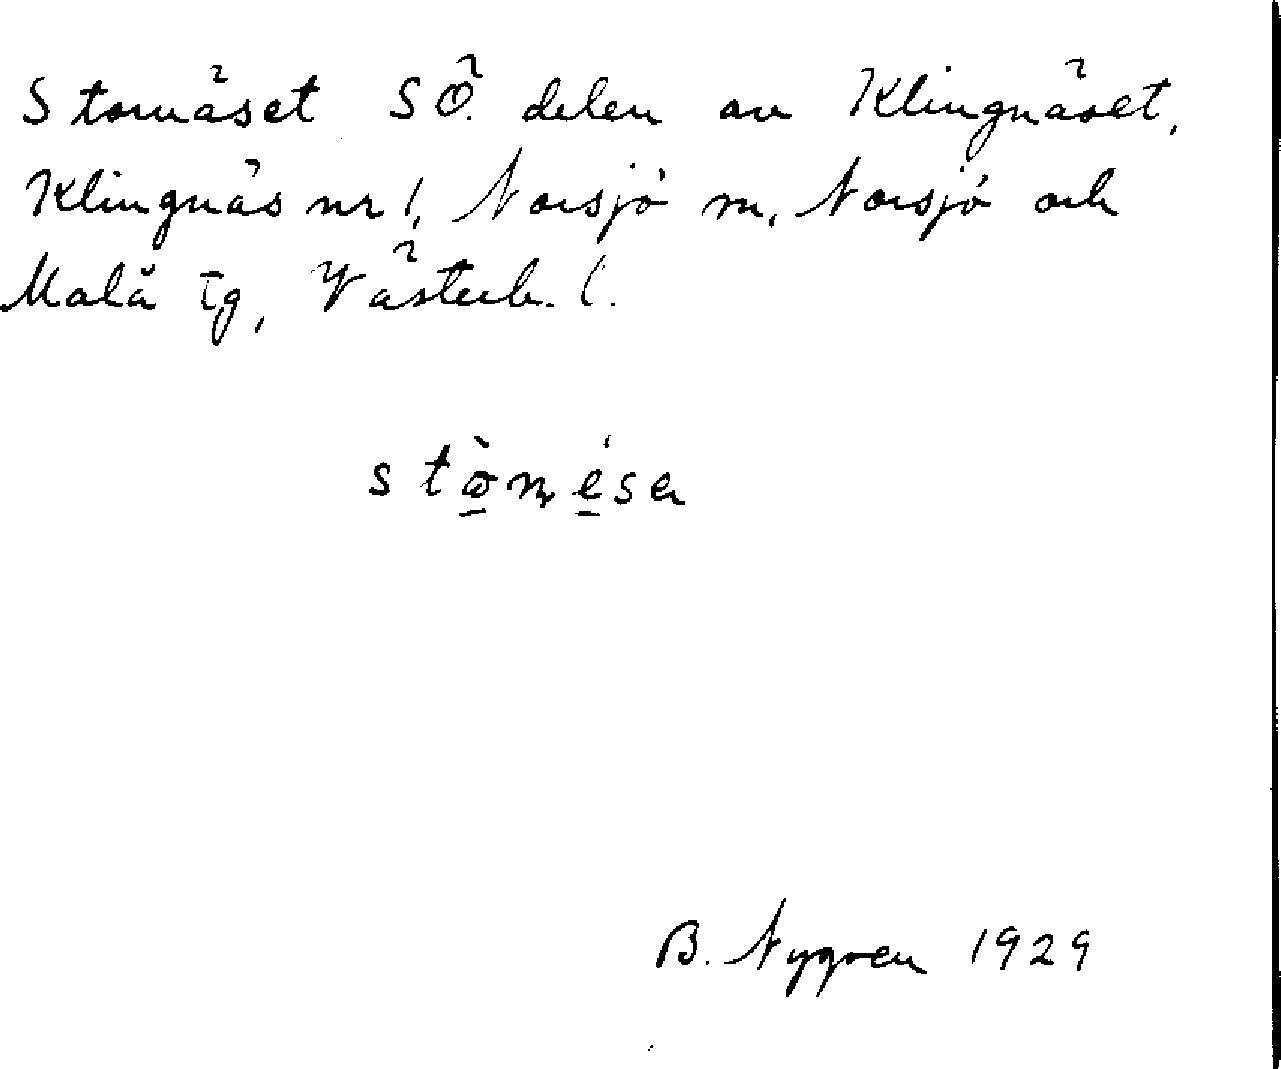 Stornäset SÖ. delen av Klingnäset,
Klingnäs nr 1, Norsjö sn, Norsjö och
Malå tg, Västerb. l.
stò̠ṇé̠sa
B. Nygren 1929